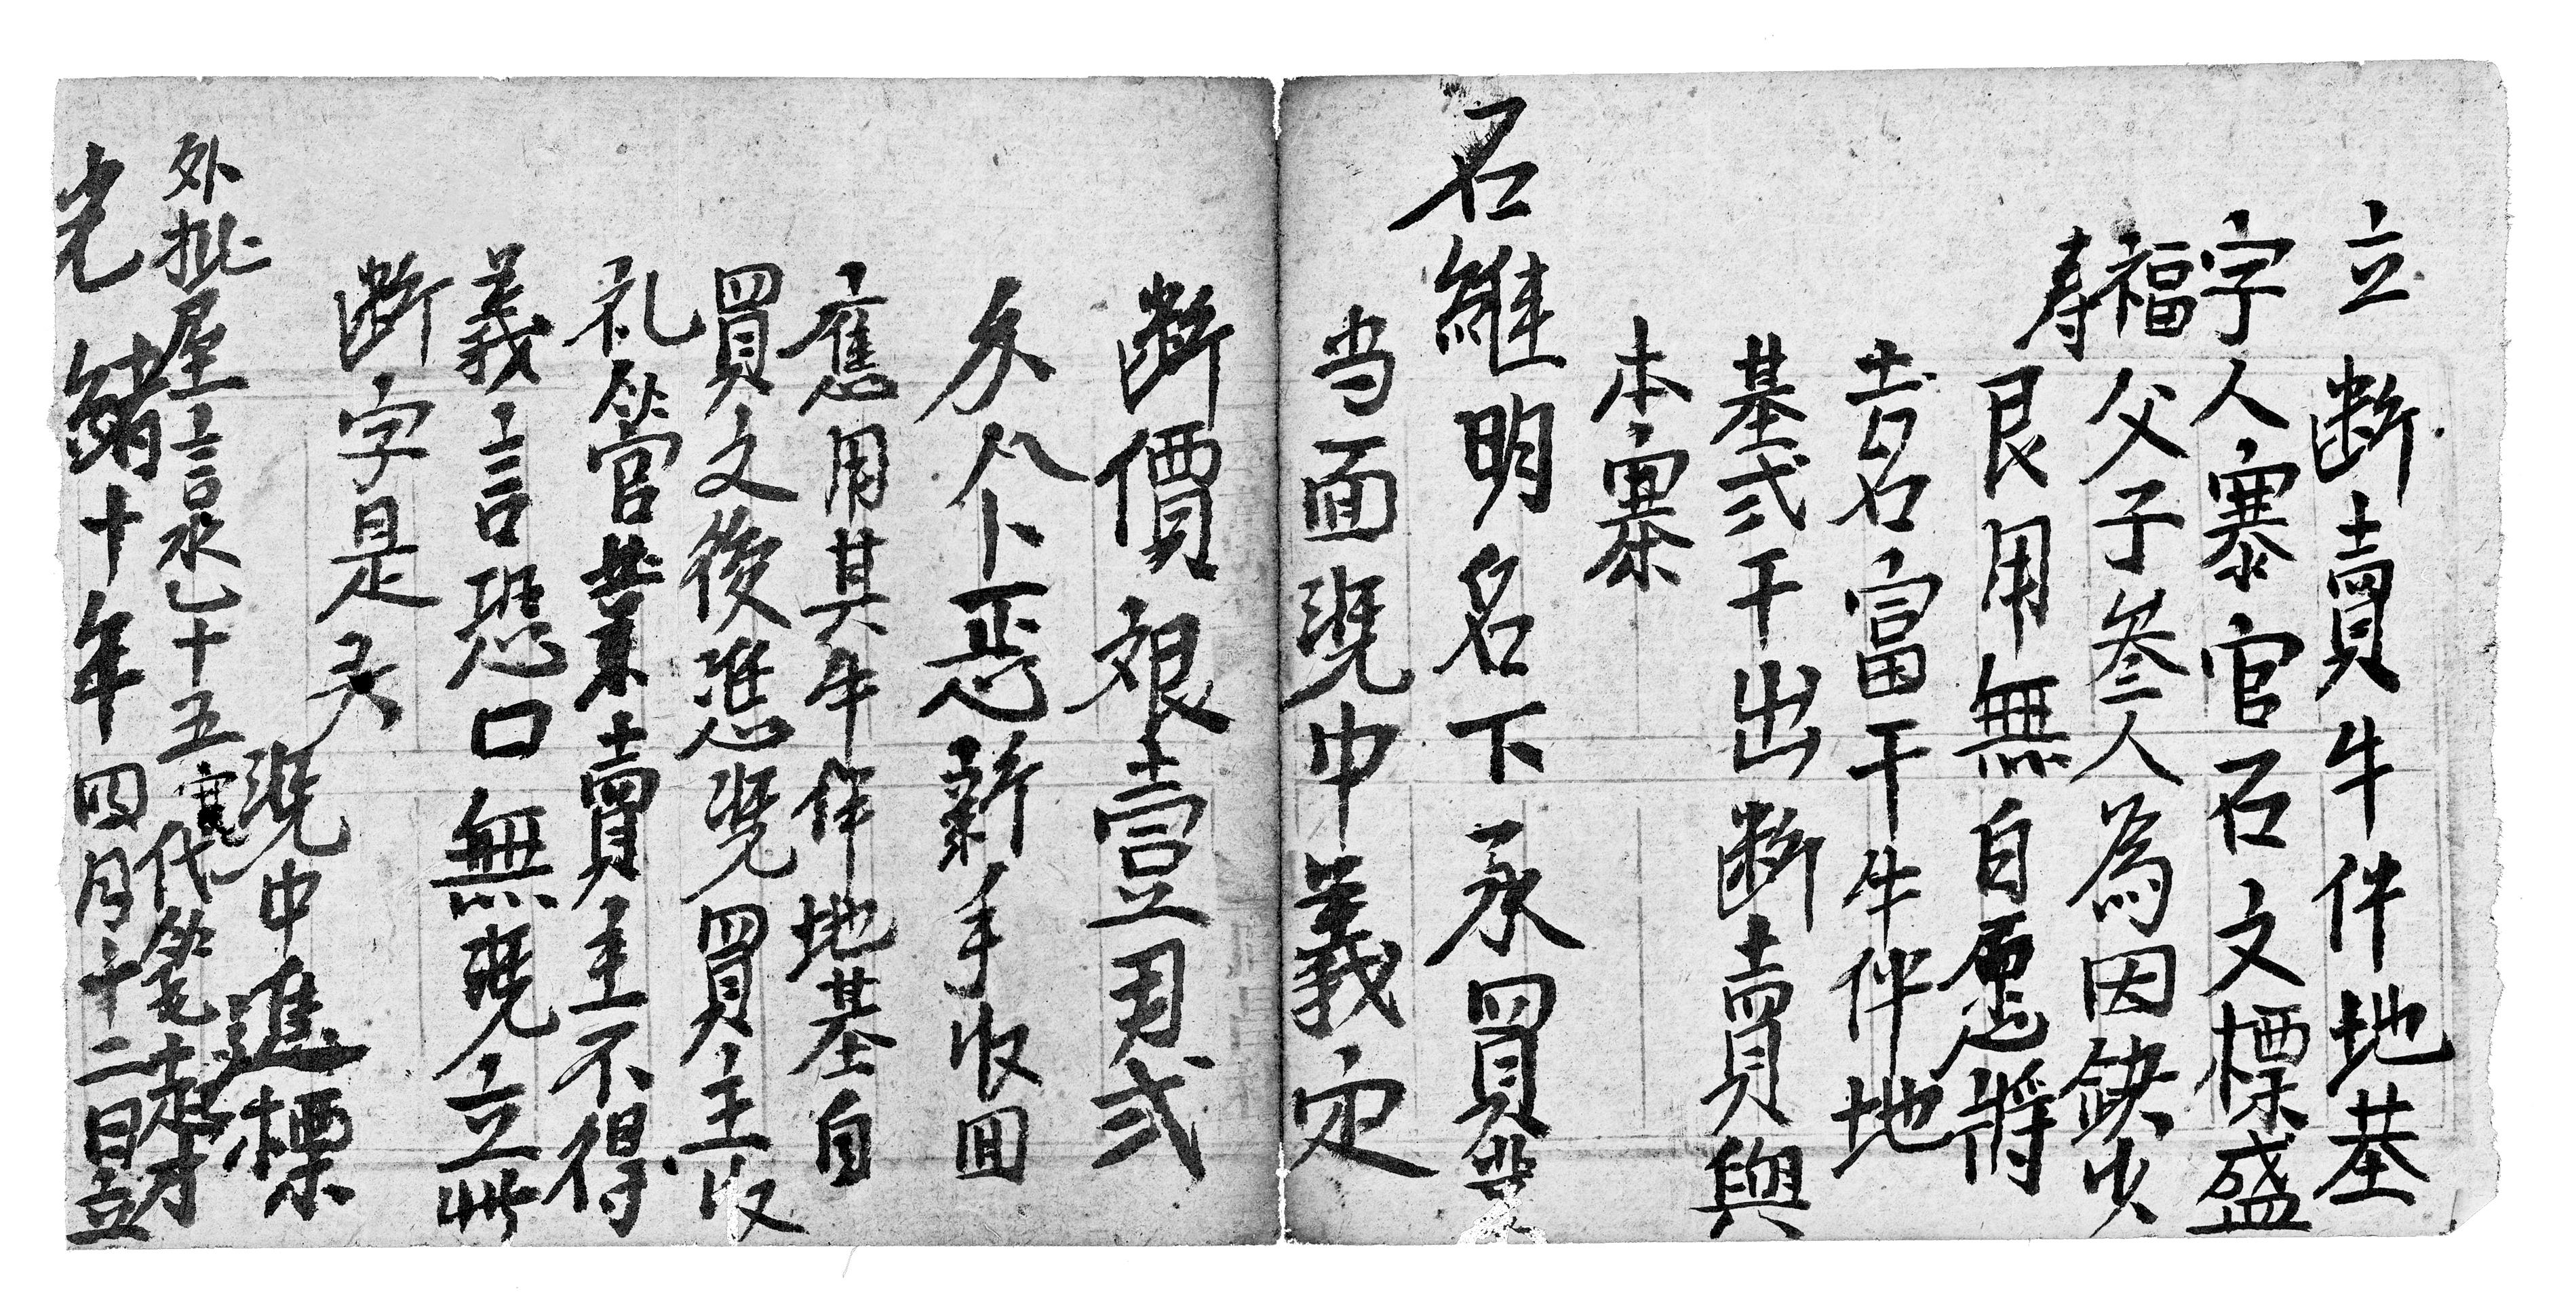 立断賣牛伴地基
字人寨官石文標盛
福父子叁人為因缺少
寿
艮用無自愿將
土名富干牛伴地
基弍干出断賣與
本寨
石維明名下承買業
当面憑中義定
断價艰壹両弍
八卜正親手收回
應用其牛伴地基自
買文後憑憑買主收
礼管業賣主不得
義言恐口無憑立此
断字是
憑中進標
外批屋言永乙十五寬代筆才
光緒十年四月十二日立